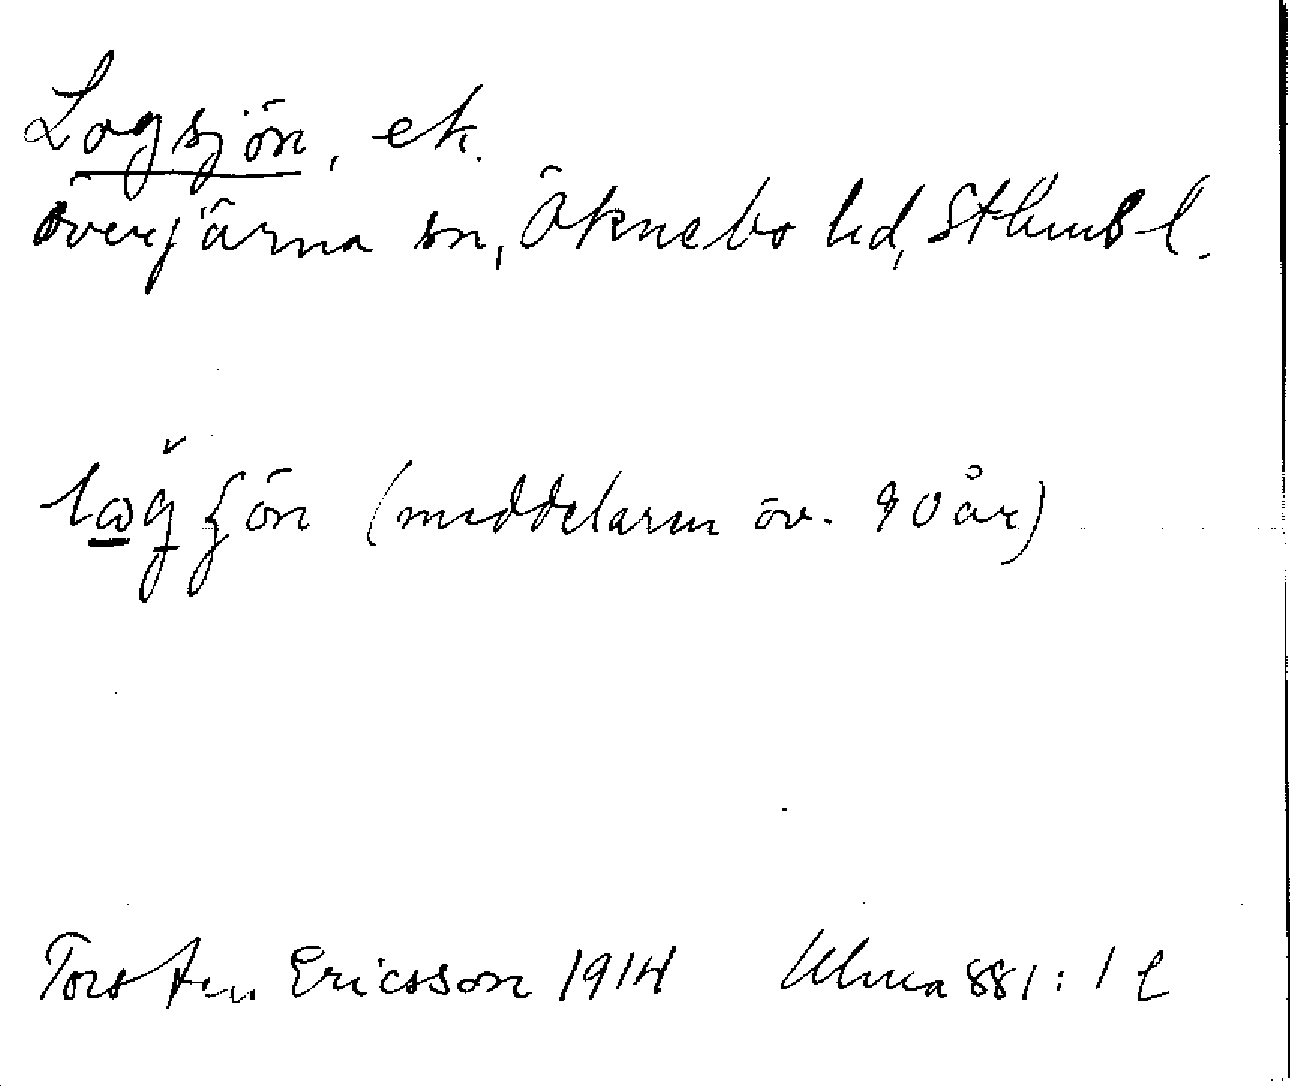 Logsjön, ek.
Överjärna sn, Öknebo hd, Sthms l.
(meddelarm öv. 90 år)
Torsten Ericsson 1914 Ulma 881:1